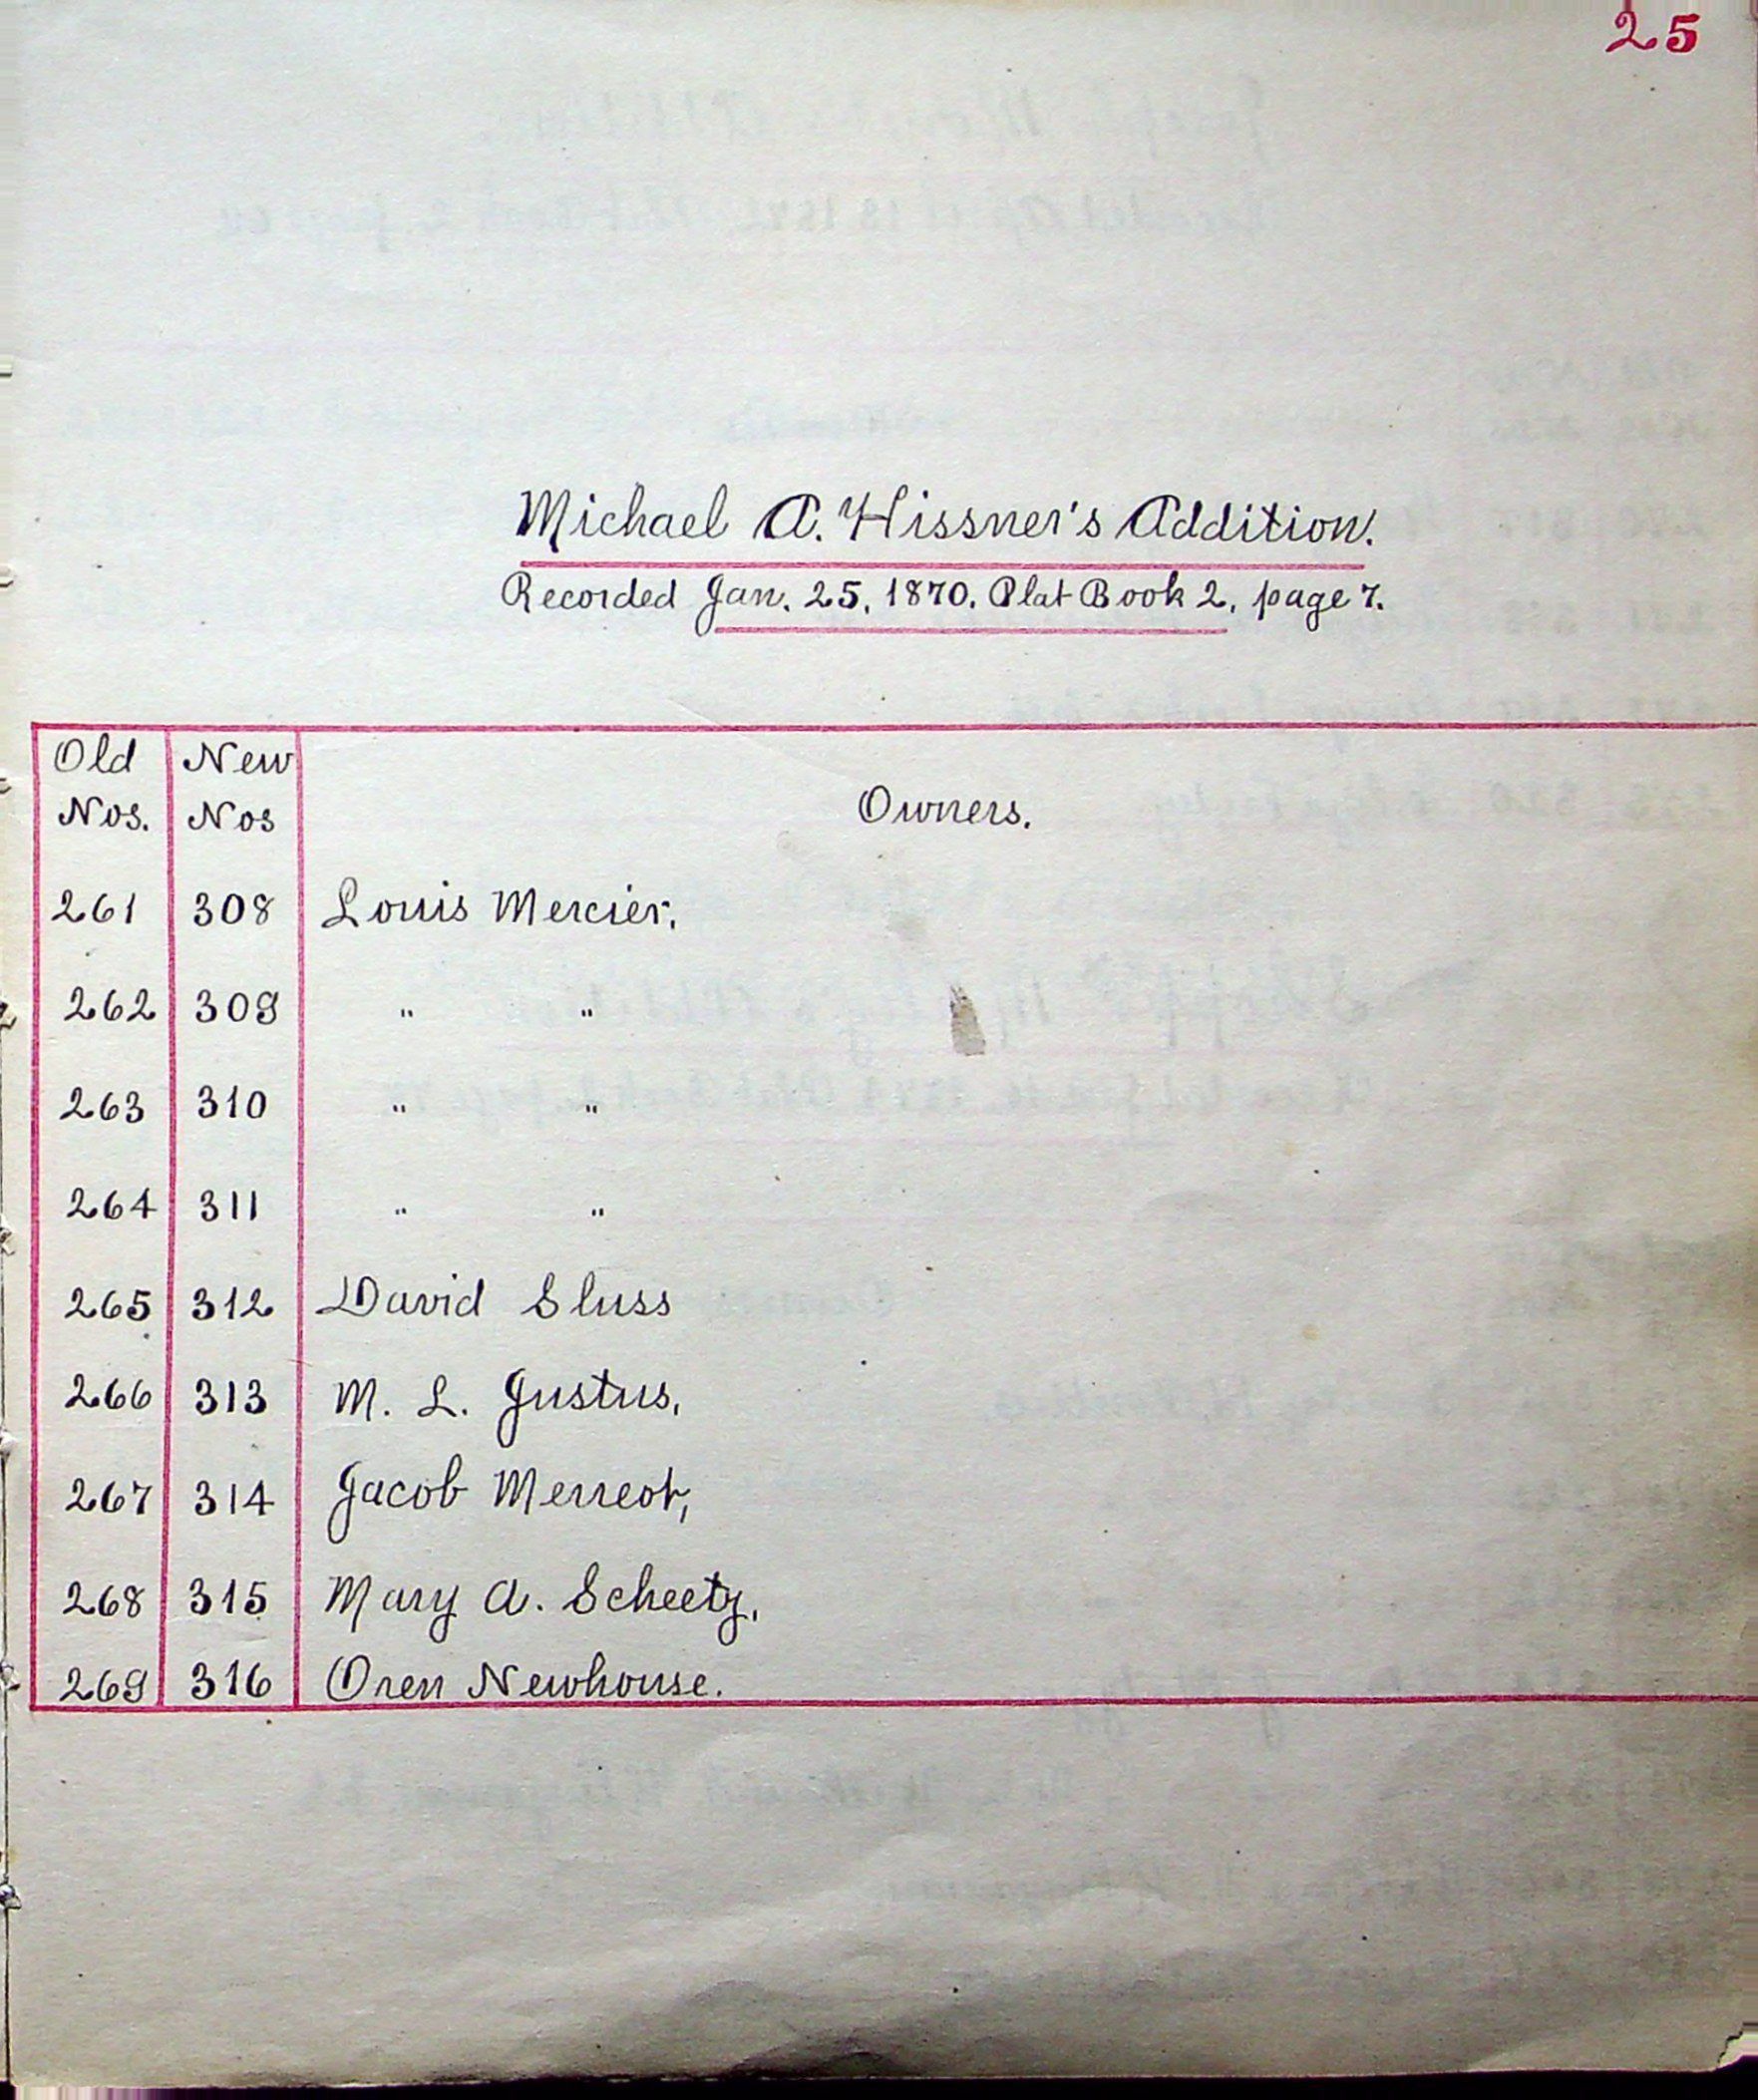 25
Michael A. Hissner's Addition.
Recorded Jan. 25, 1870. Plat Book 2, page 7.
Old Nos. New Nos Owners.
261 308 Louis Mercier.
262 309 " "
263 310 " "
264 311 " "
265 312 David Sluss
266 313 M. L. Justus.
267 314 Jacob Merreot,
268 315 Mary A. Scheetz.
269 316 Oren Newhouse.